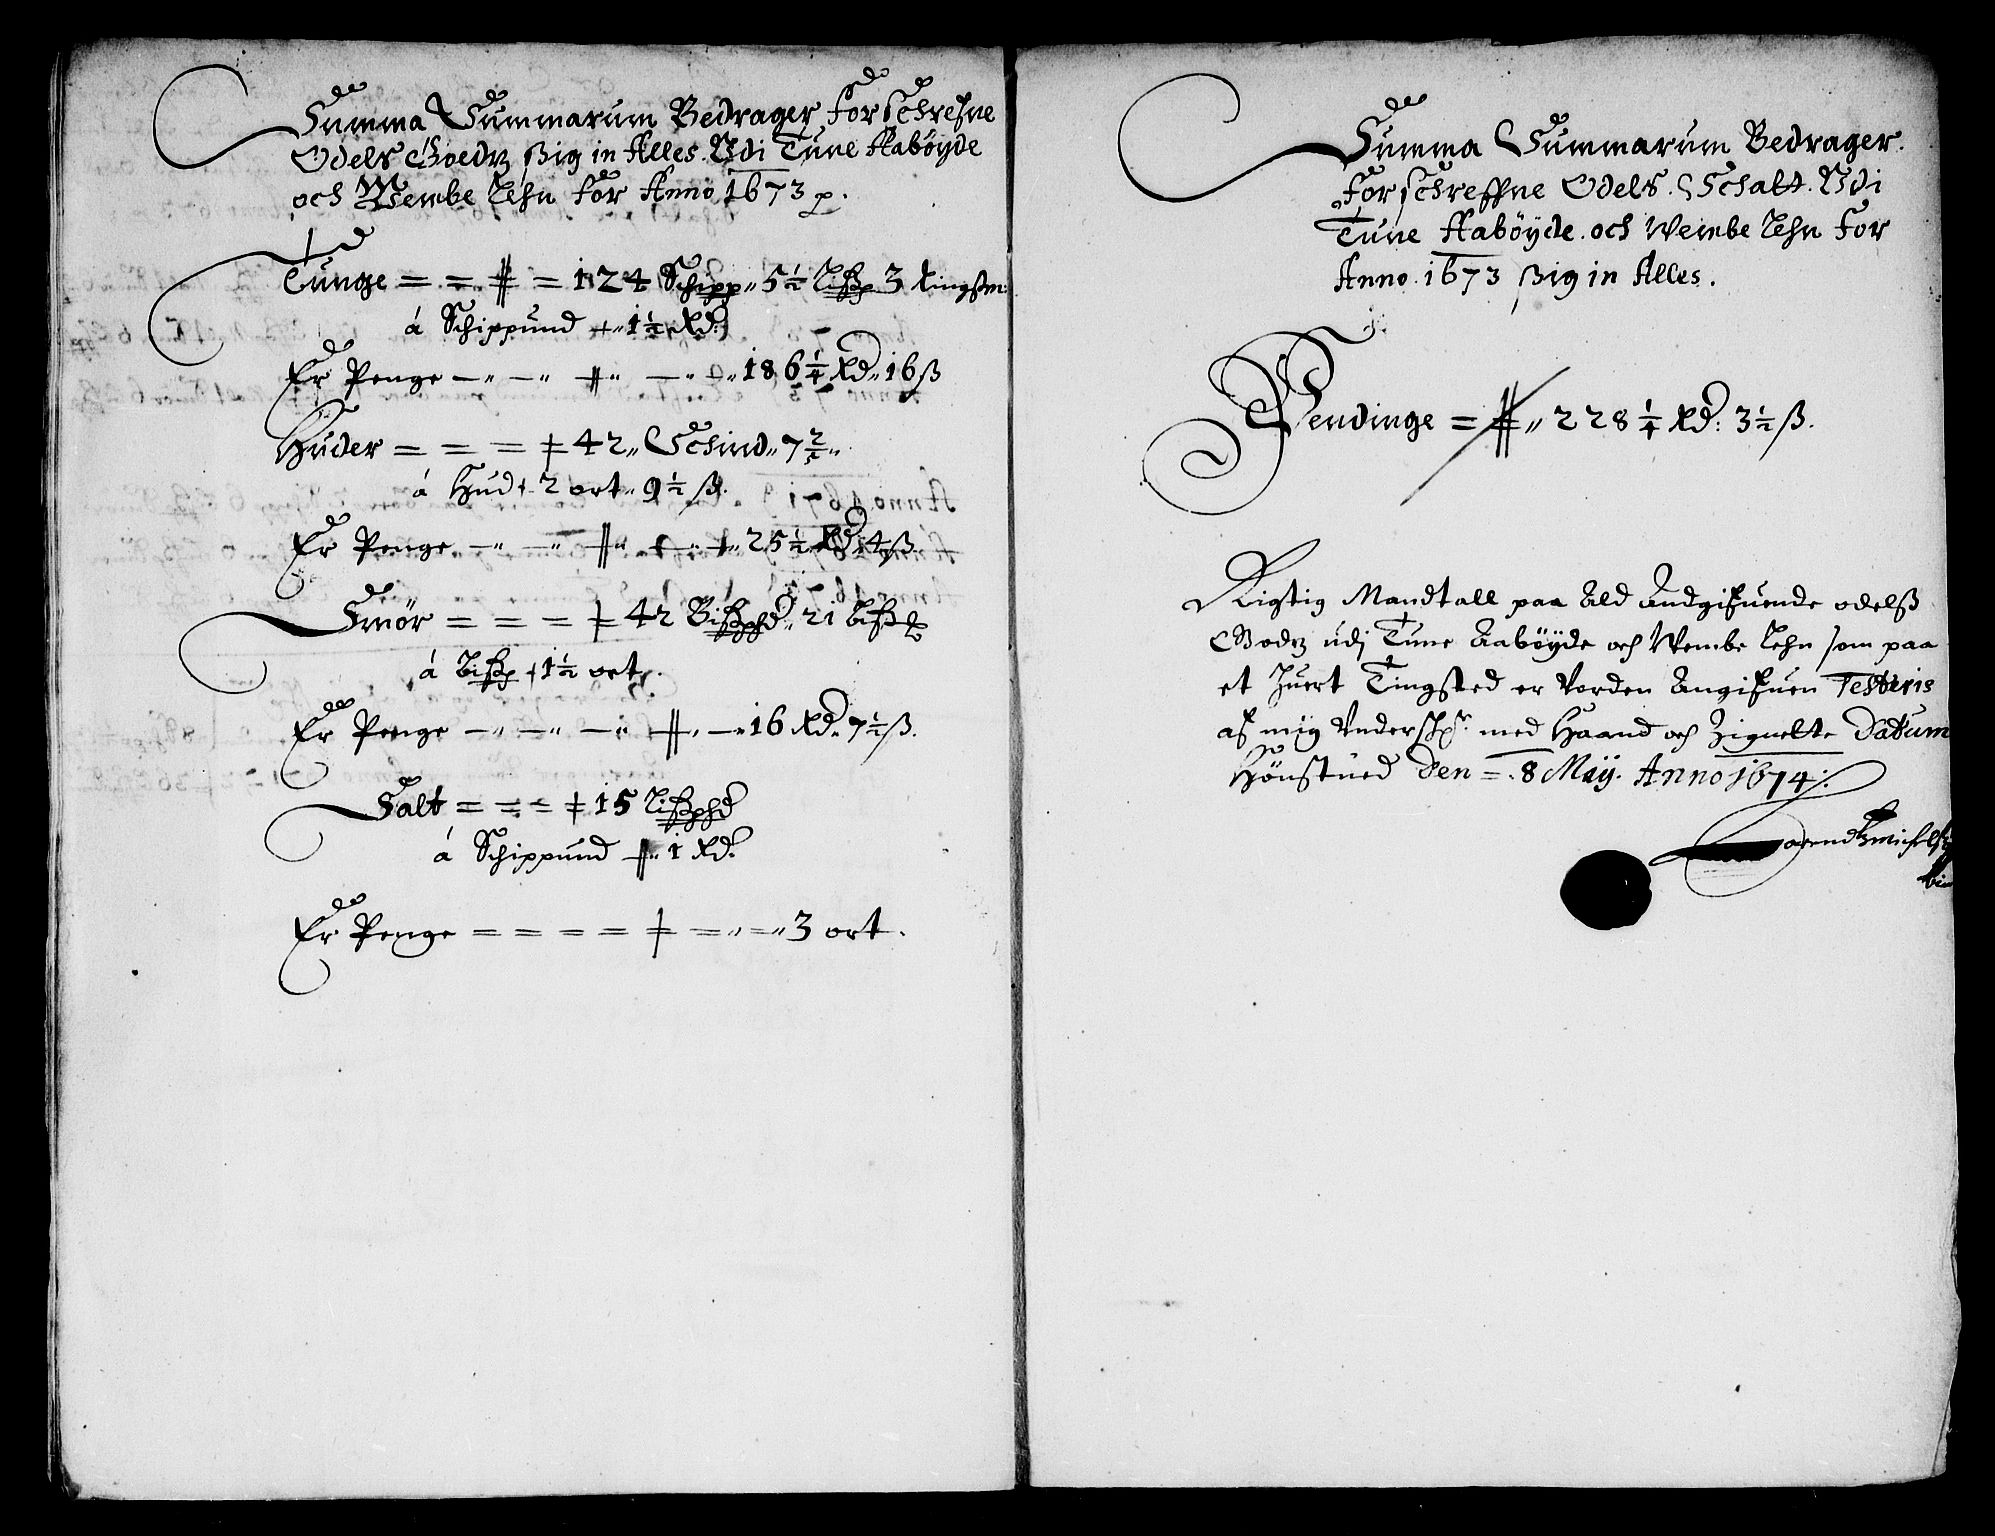 Summa Summarum Bedrager forschrefne
Odels Goedz sig in Alles. Udi Tune Aabøyde
och Wembe Lehn for Anno 1673 p.
Tunge = = = 124 Schipp 5 1/2 Lißp 3
á Schippund 1 1/2 Rd:
Er Penge — „ — „ — „ — „ — „ 186 1/4 Rd„ 16 ß
Huder = = = 42„ Schind„ 7 2/5„
á Hud 2 ort„ 9 1/2 ß.
Er Penge — „ — „ — „ — „ — „ 25 1/2 Rd. 4 ß
Smör = = = 42 Bißphd„ 21
á Bißp 1 1/2 ort.
Er Penge — „ — „ — „ — „ — „ 16 Rd„ 7 1/2 ß.
Salt = = = 15 Lißphd
á Schippund 1 Rd.
Er Penge = = = = = = „ = „ 3 ort.
Summa Summarum Bedrager.
forschreffne Odels. Schatt. Udi
Tune Aabøyde. och Wembe Lehn for
Anno. 1673 sig in Alles.
Pendinge = „ 228 1/4 Rd: 3 1/2 ß.
Rigtig Mandtall paa Ald Andgifuende odelß
Godz udj Tune Aabøyde och Wembe Lehn som paa
et huert Tingsted er Vorden Angifuen Testeris
af mig Underschr. med Haand och Zignette Datum
Hönstued Den = . 8 Maij. Anno 1674.